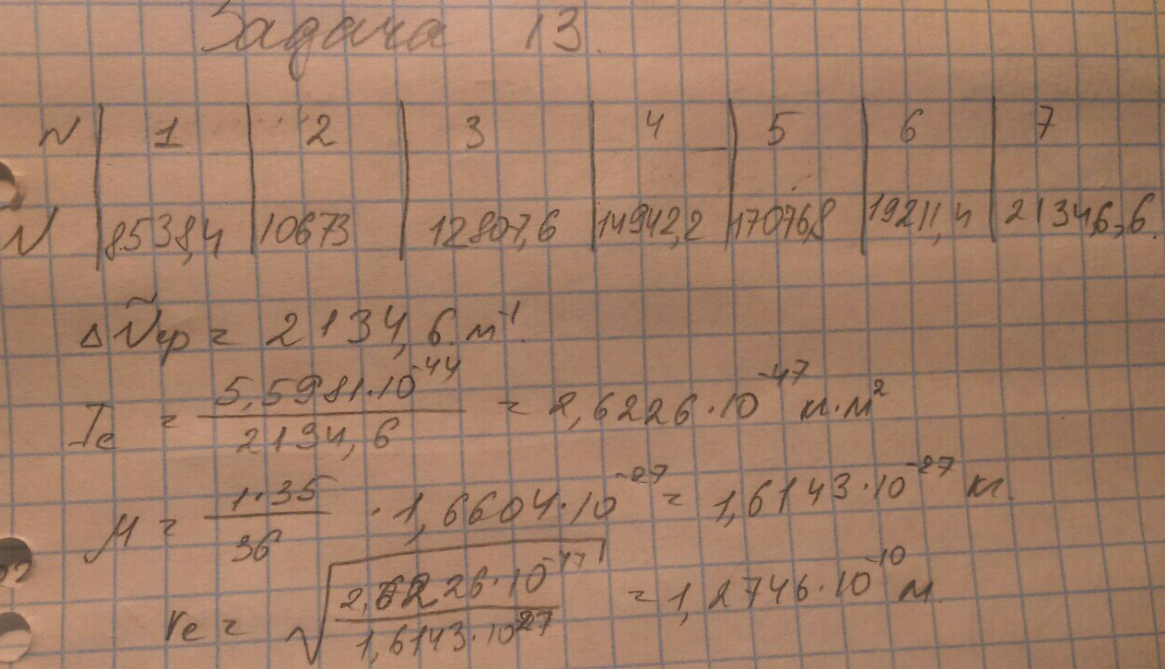 Задача 13.
N 1 2 3 4 5 6 7
ν 8538,4 10673 12807,6 14942,2 17076,8 19211,4 21346,6.
Δν̃ср = 2134,6 м⁻¹.
Ie = 5,5981·10⁻⁴⁴ / 2134,6 = 2,6226·10⁻⁴⁷ кг·м²
μ = 1·35 / 36 · 1,6604·10⁻²⁷ = 1,6143·10⁻²⁷ кг.
re = √(2,6226·10⁻⁴⁷ / 1,6143·10⁻²⁷) = 1,2746·10⁻¹⁰ м.